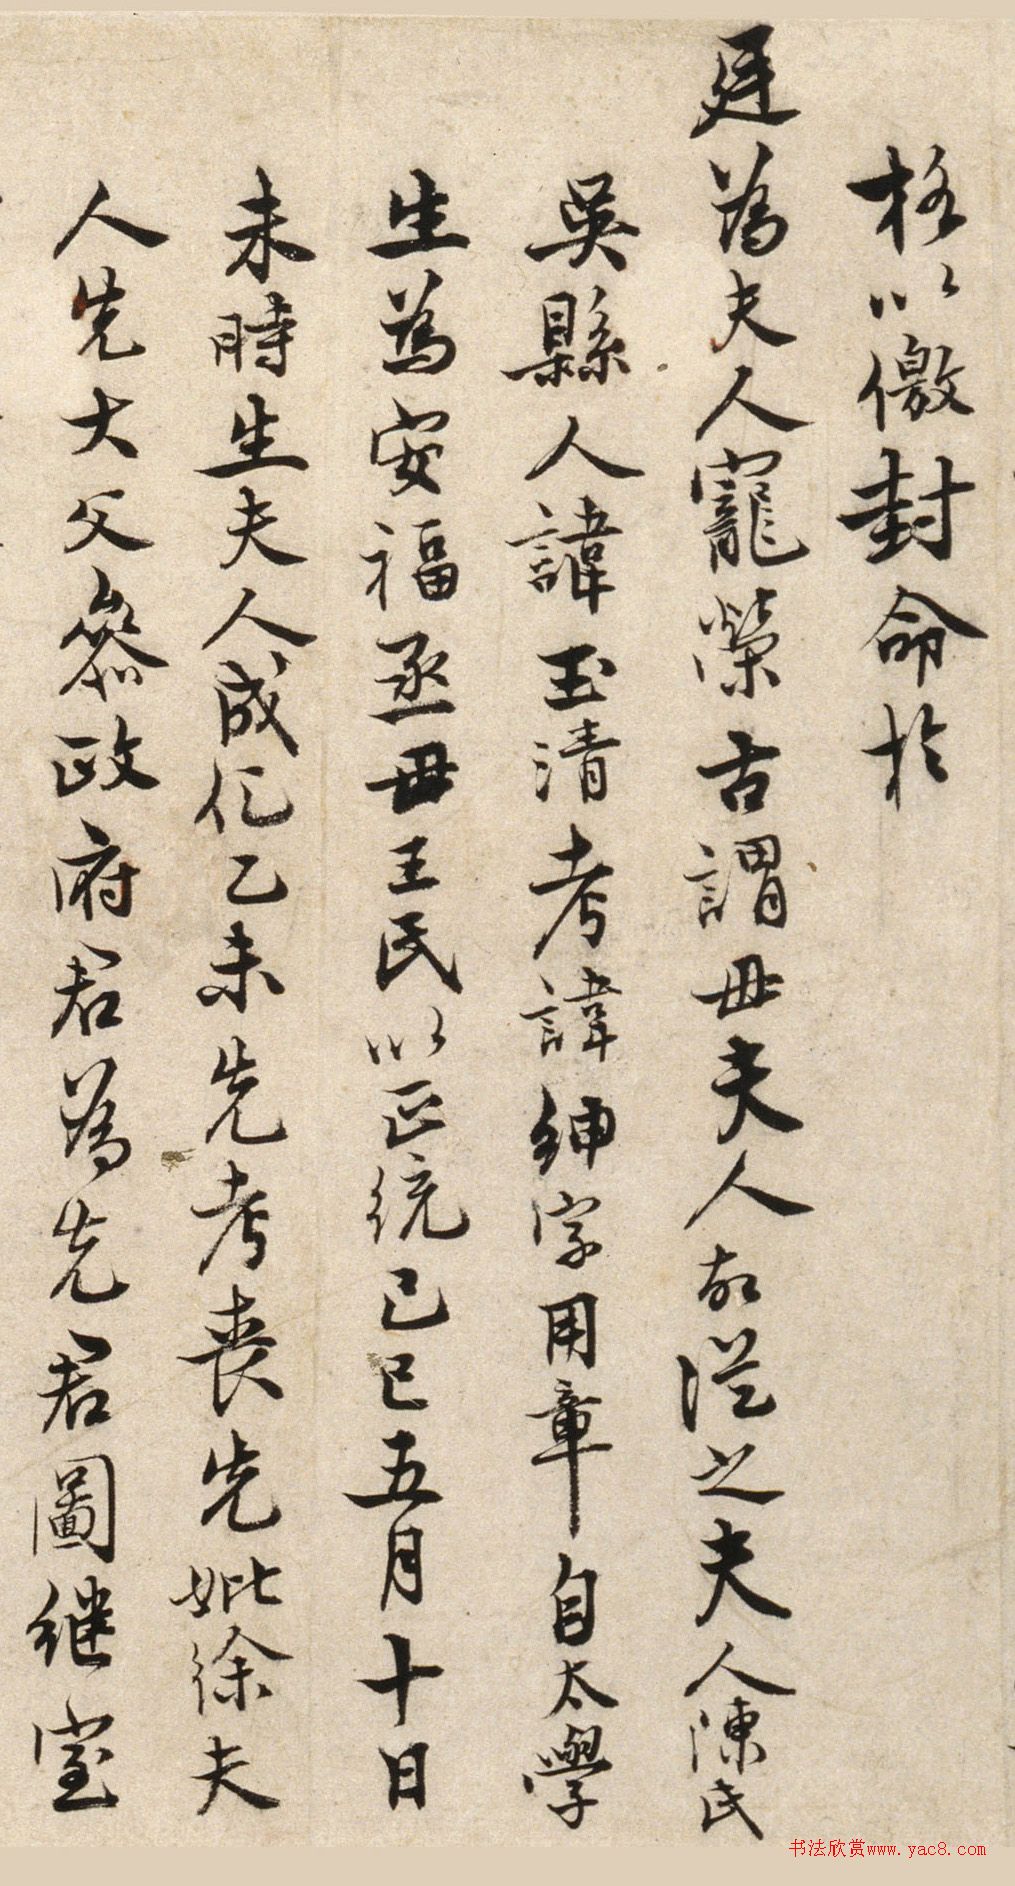 格以徼封命於
廷為夫人寵榮古謂毋夫人故從之夫人陳氏
吳縣人諱玉清考諱紳字用章自太學
生為安福丞毋王氏以正統己巳五月十日
未時生夫人成化乙未先考喪先妣徐夫
人先大父參政府君為先君圖继室
书法欣赏www.yac8.com